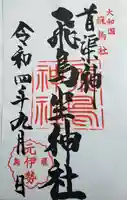 大和國
飛鳥社
首渠神
飛鳥坐神社
令和四年九月 日
元伊勢